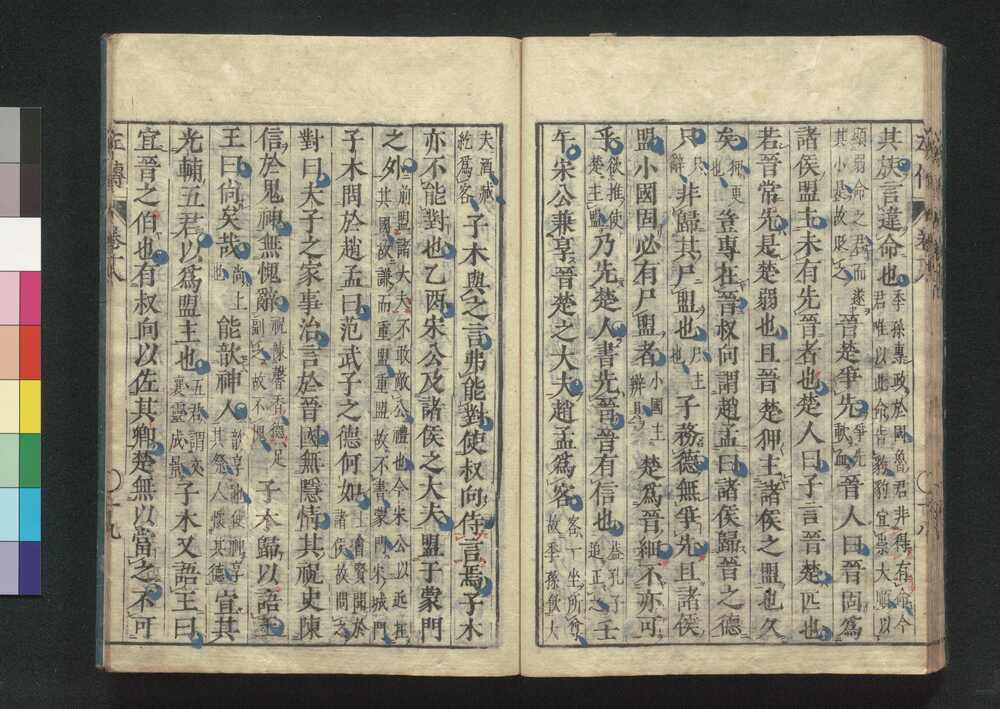 其族言違命也季孫專政於國魯君非得有命今君唯以此命告豹豹宜崇大順以
顯弱命之君而遂其小是故貶之晉楚爭先爭先歃血晉人曰晉固爲
諸侯盟主未有先晉者也楚人曰子言晉楚匹也
若晉常先是楚弱也且晉楚狎主諸侯之盟也久
矣狎更也豈專在晉叔向謂趙孟曰諸侯歸晉之德
只只辭非歸其尸盟也尸主也子務德無爭先且諸侯
盟小國固必有尸盟者小國主辨具楚爲晉細不亦可
乎欲推使楚主盟乃先楚人書先晉晉有信也蓋孔子追正之壬
午宋公兼享晉楚之大夫趙孟爲客客一坐所尊故季孫飲大
夫酒臧紇爲客子木與之言弗能對使叔向侍言焉子木
亦不能對也乙酉宋公及諸侯之大夫盟于蒙門
之外前盟諸大夫不敢敵公禮也今宋公以近在其國故謙而重盟重盟故不書蒙門宋城門
子木問於趙孟曰范武子之德何如士會賢聞於諸侯故問之
對曰夫子之家事治言於晉國無隱情其祝史陳
信於鬼神無愧辭祝陳馨香德足副之故不愧子木歸以語王
王曰尚矣哉尚上也能歆神人歆享也使神享其祭人懷其德宜其
光輔五君以爲盟主也五君謂文襄靈成景子木又語王曰
宜晉之伯也有叔向以佐其卿楚無以當之不可